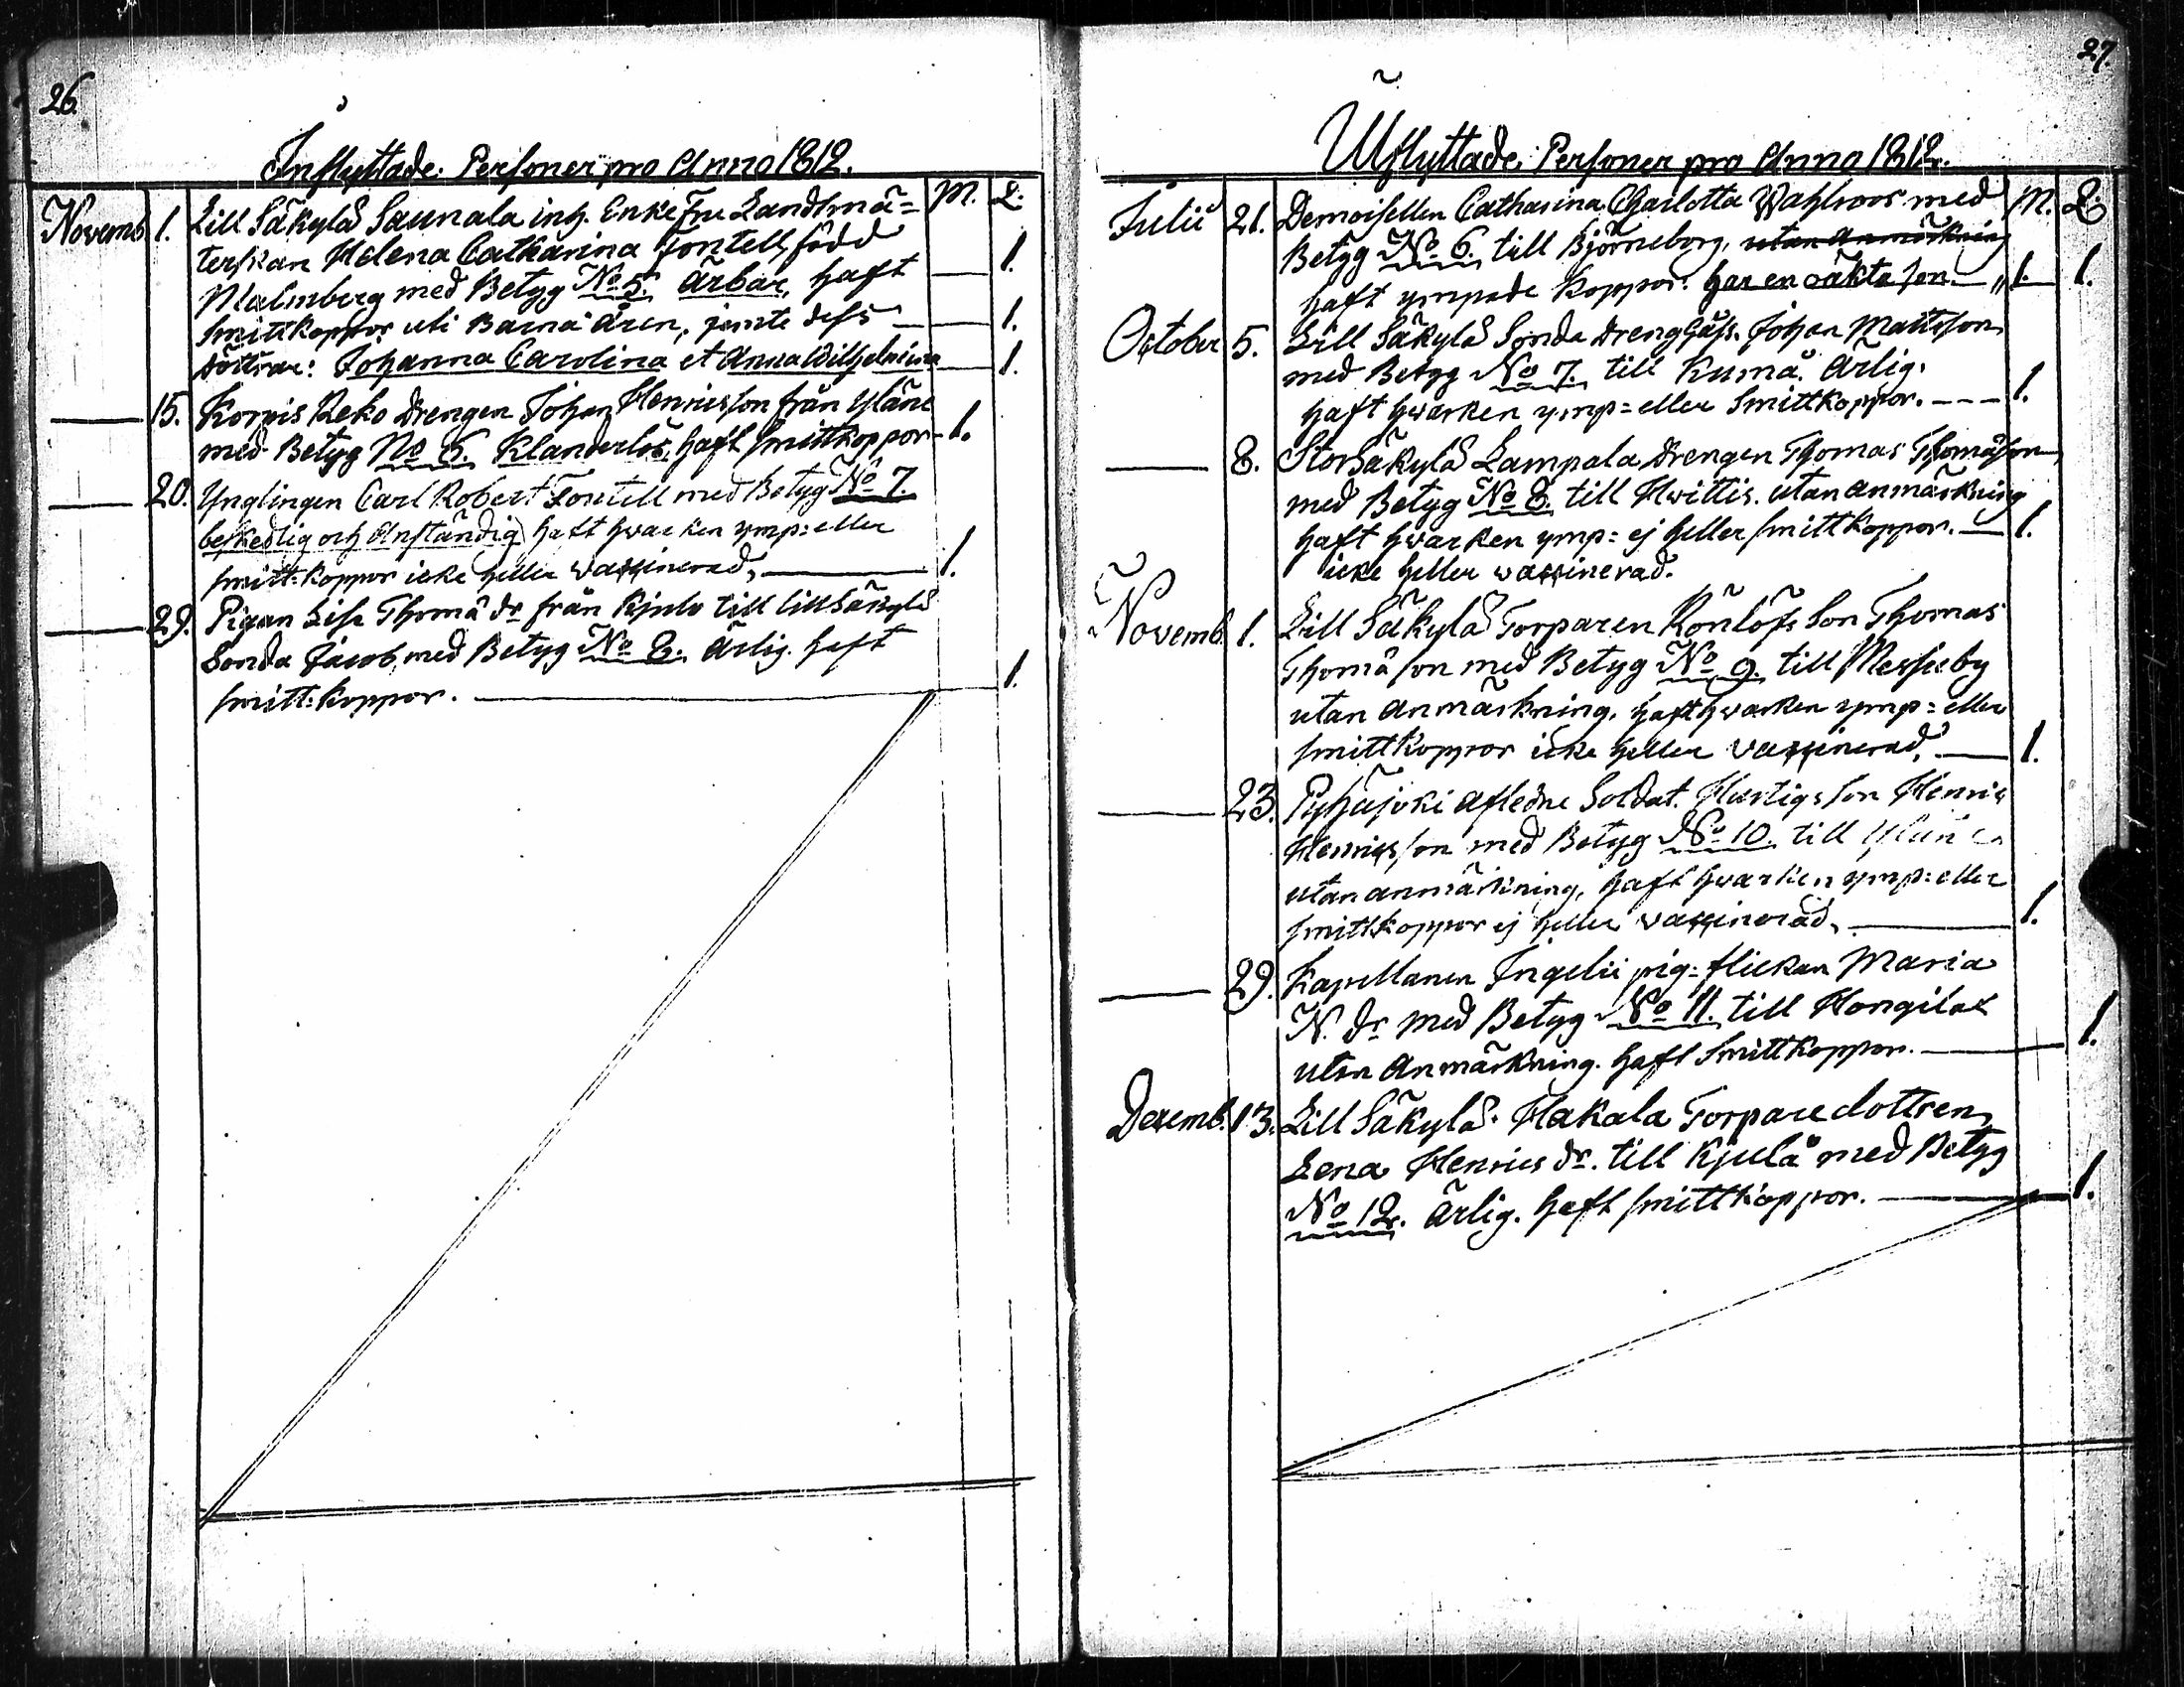 26.
Inflyttade Personer pro Anno 1812.
M. Q.
Novemb. 1. Lill Säkylä Saunala inh. Enke Fru Landtmä=
terskan Helena Catharina Fontell, född
Malmberg med Betyg No 5. Ärbar, haft — 1.
Smittkoppor uti Barna Åren, jemte dess — 1.
döttrar: Johanna Carolina et Anna Wilhelmina — 1.
— 15. Korpis Reko Drengen Johan Henricsson från Yläne
med Betyg No 6. Klanderlös, haft smittkoppor — 1.
— 20. Ynglingen Carl Robert Fontell med Betyg No 7.
beskedlig och Anständig haft hwarken ymp: eller
smitt: koppor icke heller waxinerad, — 1.
— 29. Pigan Lisa Thomä dr från Kjulo till Lill Säkylä
Sonda Jacob, med Betyg No 8. Ärlig. haft
smitt: koppor. — 1.
27.
Utflyttade Personer pro Anno 1812.
M. Q.
Julii 21. Demoisellen Catharina Charlotta Wahlroos med
Betyg No 6. till Björneborg, utan Anmärkning
haft ympade Koppor. har en oäkta son. — 1. 1.
October 5. Lill Säkylä Sonda Dreng Johan Mattsson
med Betyg No 7. till Kumå. Ärlig.
haft hwarken ymp= eller Smittkoppor. — 1.
— 8. Stor Säkylä Lampala Drengen Thomas Thomasson
med Betyg No 8. till Hwittis. utan anmärkning
haft hwarken ymp= ej heller smittkoppor. — 1.
icke heller waxinerad.
Novemb. 1. Lill Säkylä Torparen Rönlöfs Son Thomas
Thomä son med Betyg No 9. till Messuby
utan anmärkning, haft hwarken ymp= eller
smittkoppor icke heller vaxinerad, — 1.
— 23. Pyhäjoki Afledne Soldat. Hurtigs son Henric
Henricsson med Betyg No 10. till Yläne
utan anmärkning, haft hwarken ymp= eller
smittkoppor ej heller vaxinerad, — 1.
— 29. Kapellanen Ingelii pig= flickan Maria
N. dr med Betyg No 11. till Hongilax
utan Anmärkning. haft Smittkoppor. — 1.
Decemb. 13. Lill Säkylä Hakala Torpare dottren
Lena Henrics dr. till Kjula med Betyg
No 12. Ärlig. haft smittkoppor. — 1.